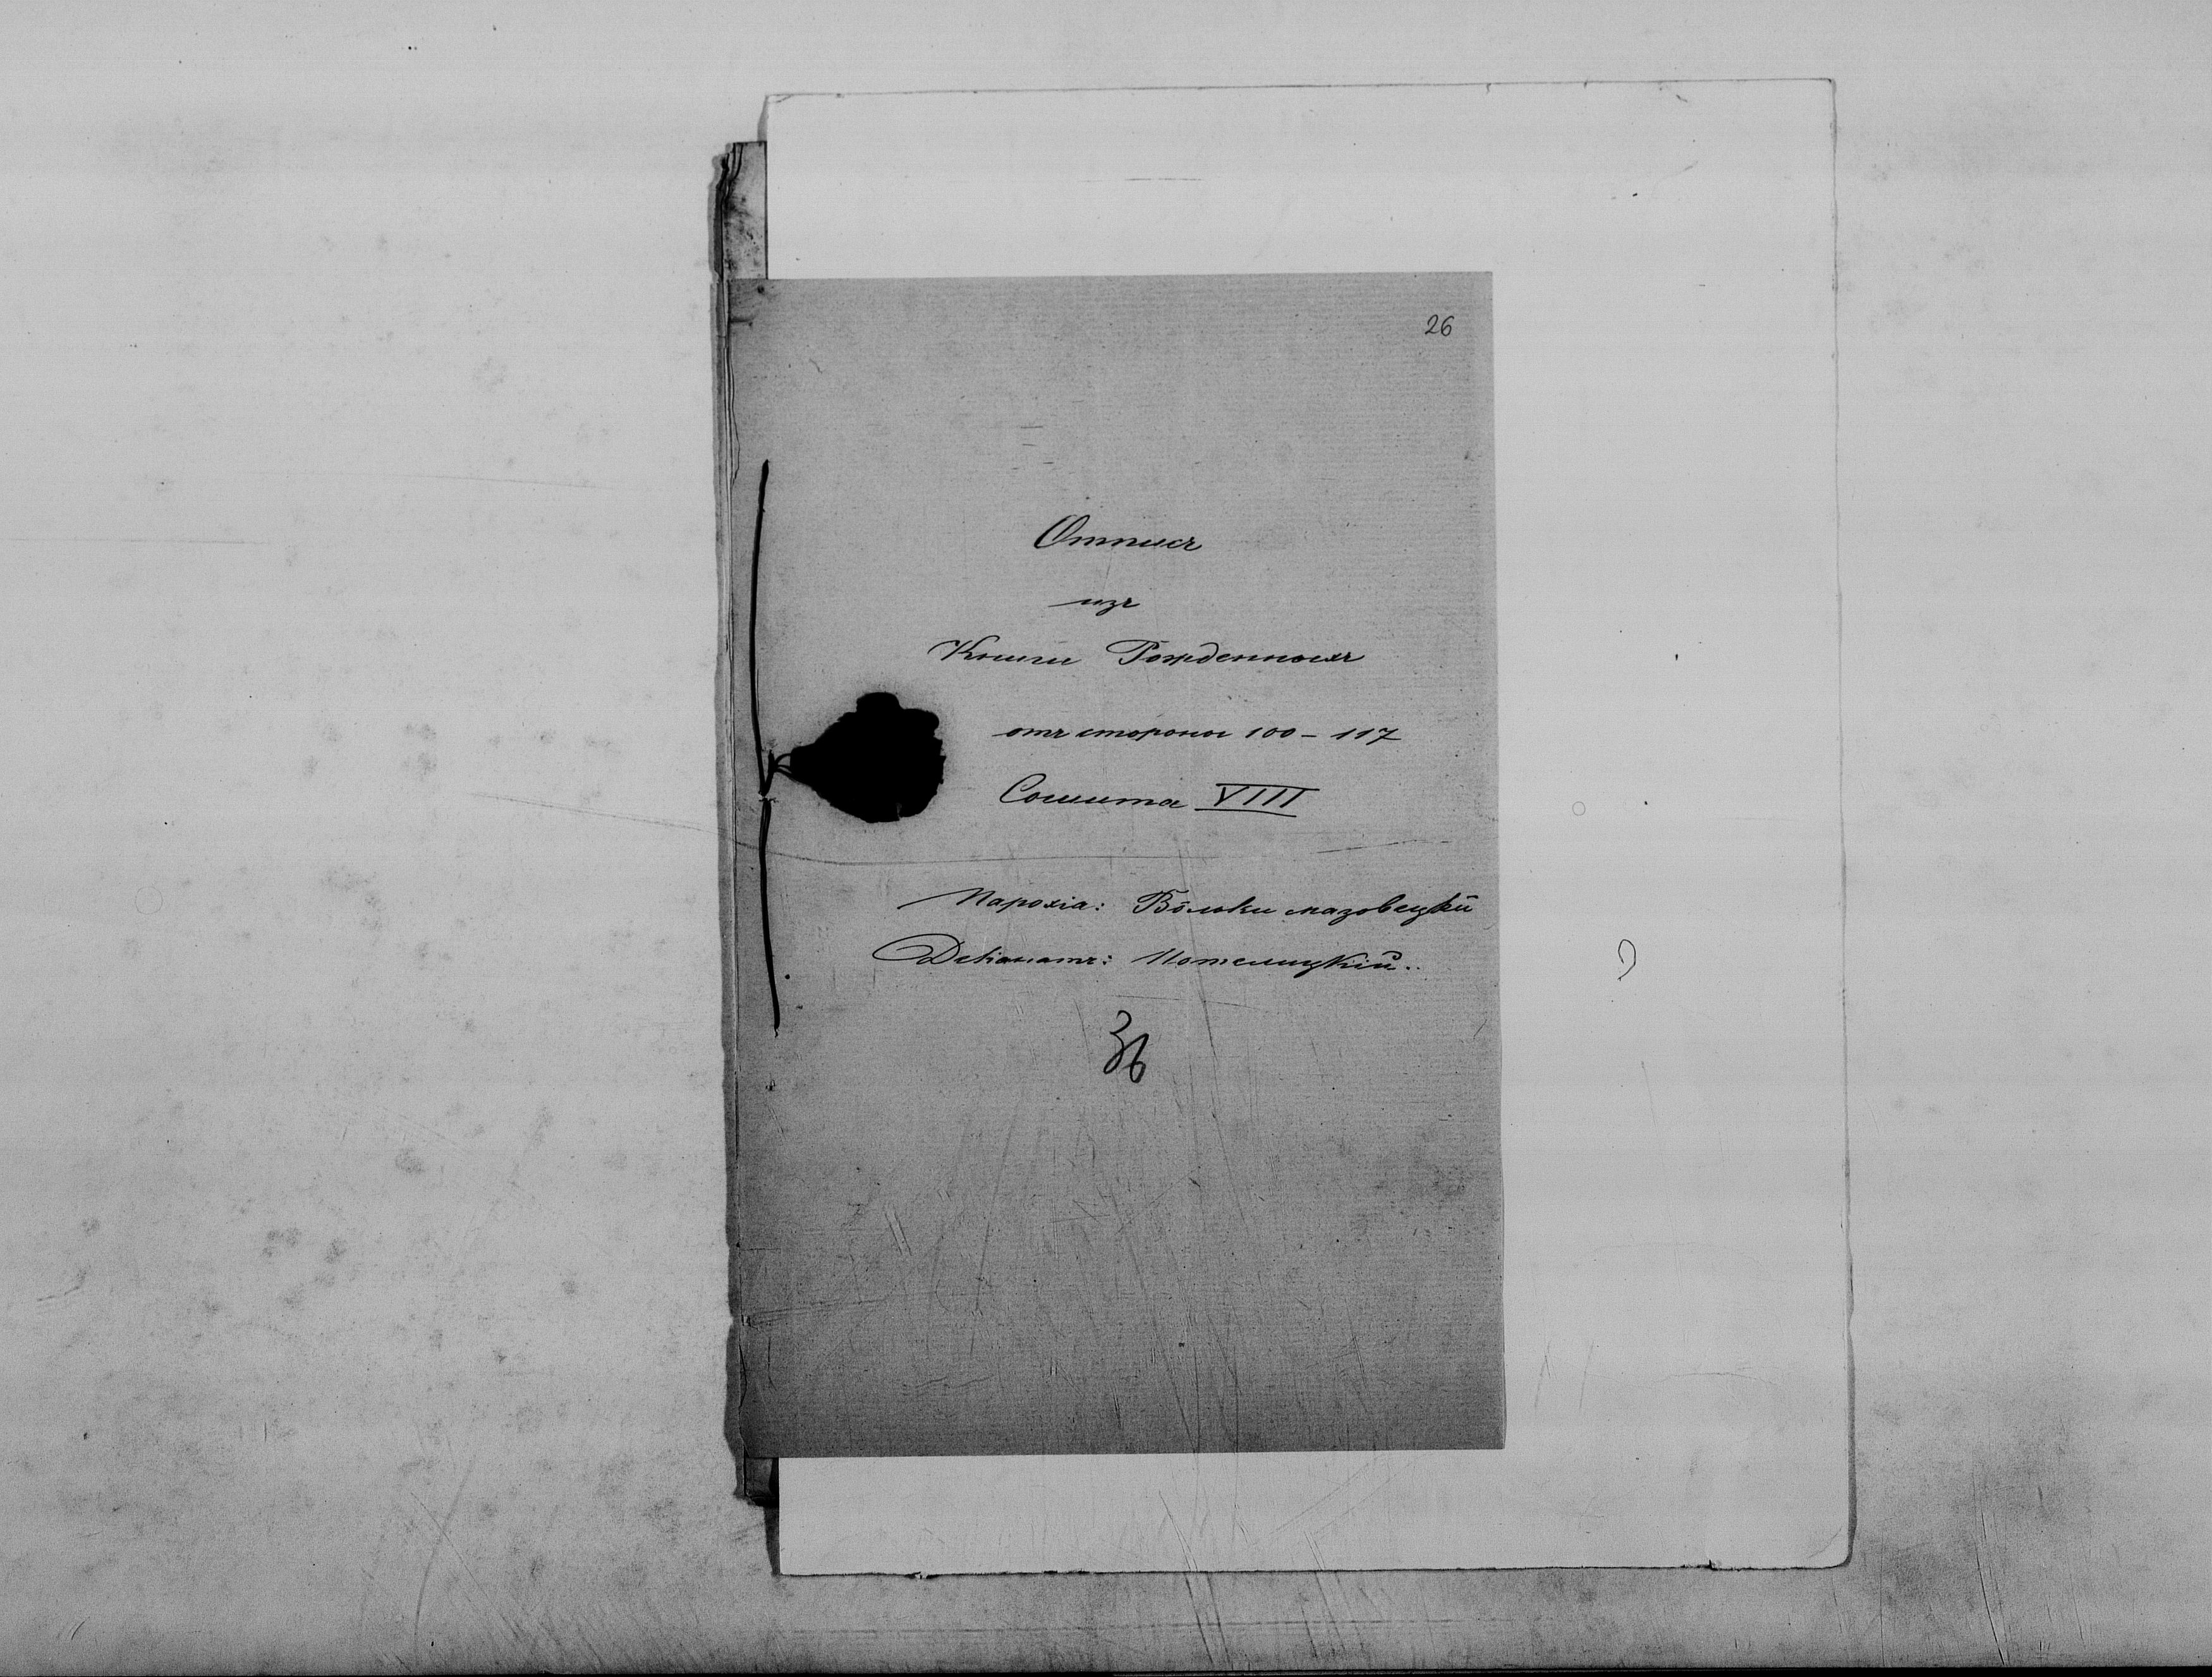 26
Отписъ
изъ
Книги Рожденныхъ
отъ стороны 100 – 117
Сошита VIII
Парохія: Вôльки мазовецкіи
Деканатъ: Потелицкій.
36